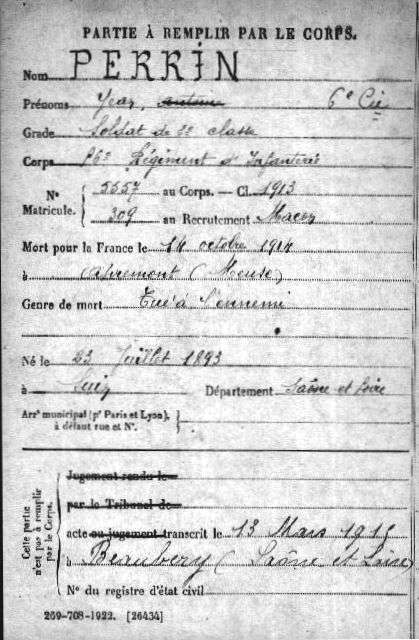 PARTIE À REMPLIR PAR LE CORPS.
Nom PERRIN
Prénoms Jean, Antoine 6e Cie
Grade Soldat de 2e classe
Corps 56e Régiment d'Infanterie
Nº Matricule. 5557 au Corps. — Cl. 1913
309 au Recrutement Macon
Mort pour la France le 14 octobre 1914
à Apremont (Meuse)
Genre de mort Tué à l'ennemi
Né le 23 Juillet 1893
à Département Saône et Loire
Arrt municipal (pr Paris et Lyon),
à défaut rue et Nº.
Cette partie
n'est pas à remplir
par le Corps.
Jugement rendu le
par le Tribunal de
acte ou jugement transcrit le 13 Mars 1915
à Beaubery (Saône et Loire)
Nº du registre d'état civil
269-708-1922. [26434]